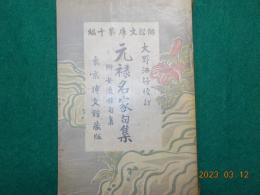 俳諧文庫第十編
大野洒竹校訂
元禄名家句集
附安永名家句集
東京博文館蔵版
2023-03-12